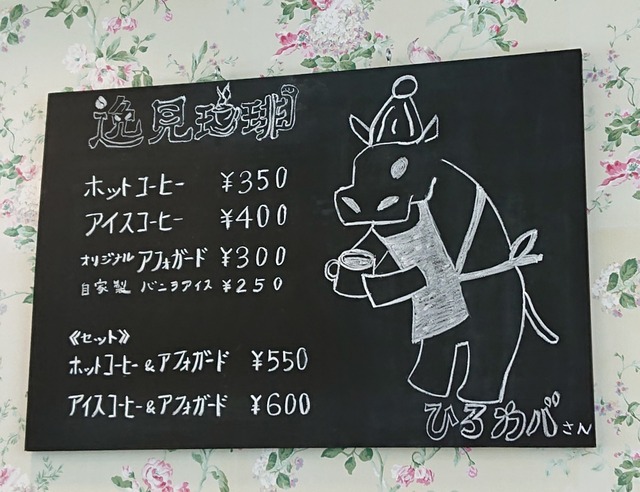 逸見珈琲
ホットコーヒー ¥350
アイスコーヒー ¥400
オリジナル アフォガード ¥300
自家製 バニラアイス ¥250
《セット》
ホットコーヒー&アフォガード ¥550
アイスコーヒー&アフォガード ¥600
ひるカバさん